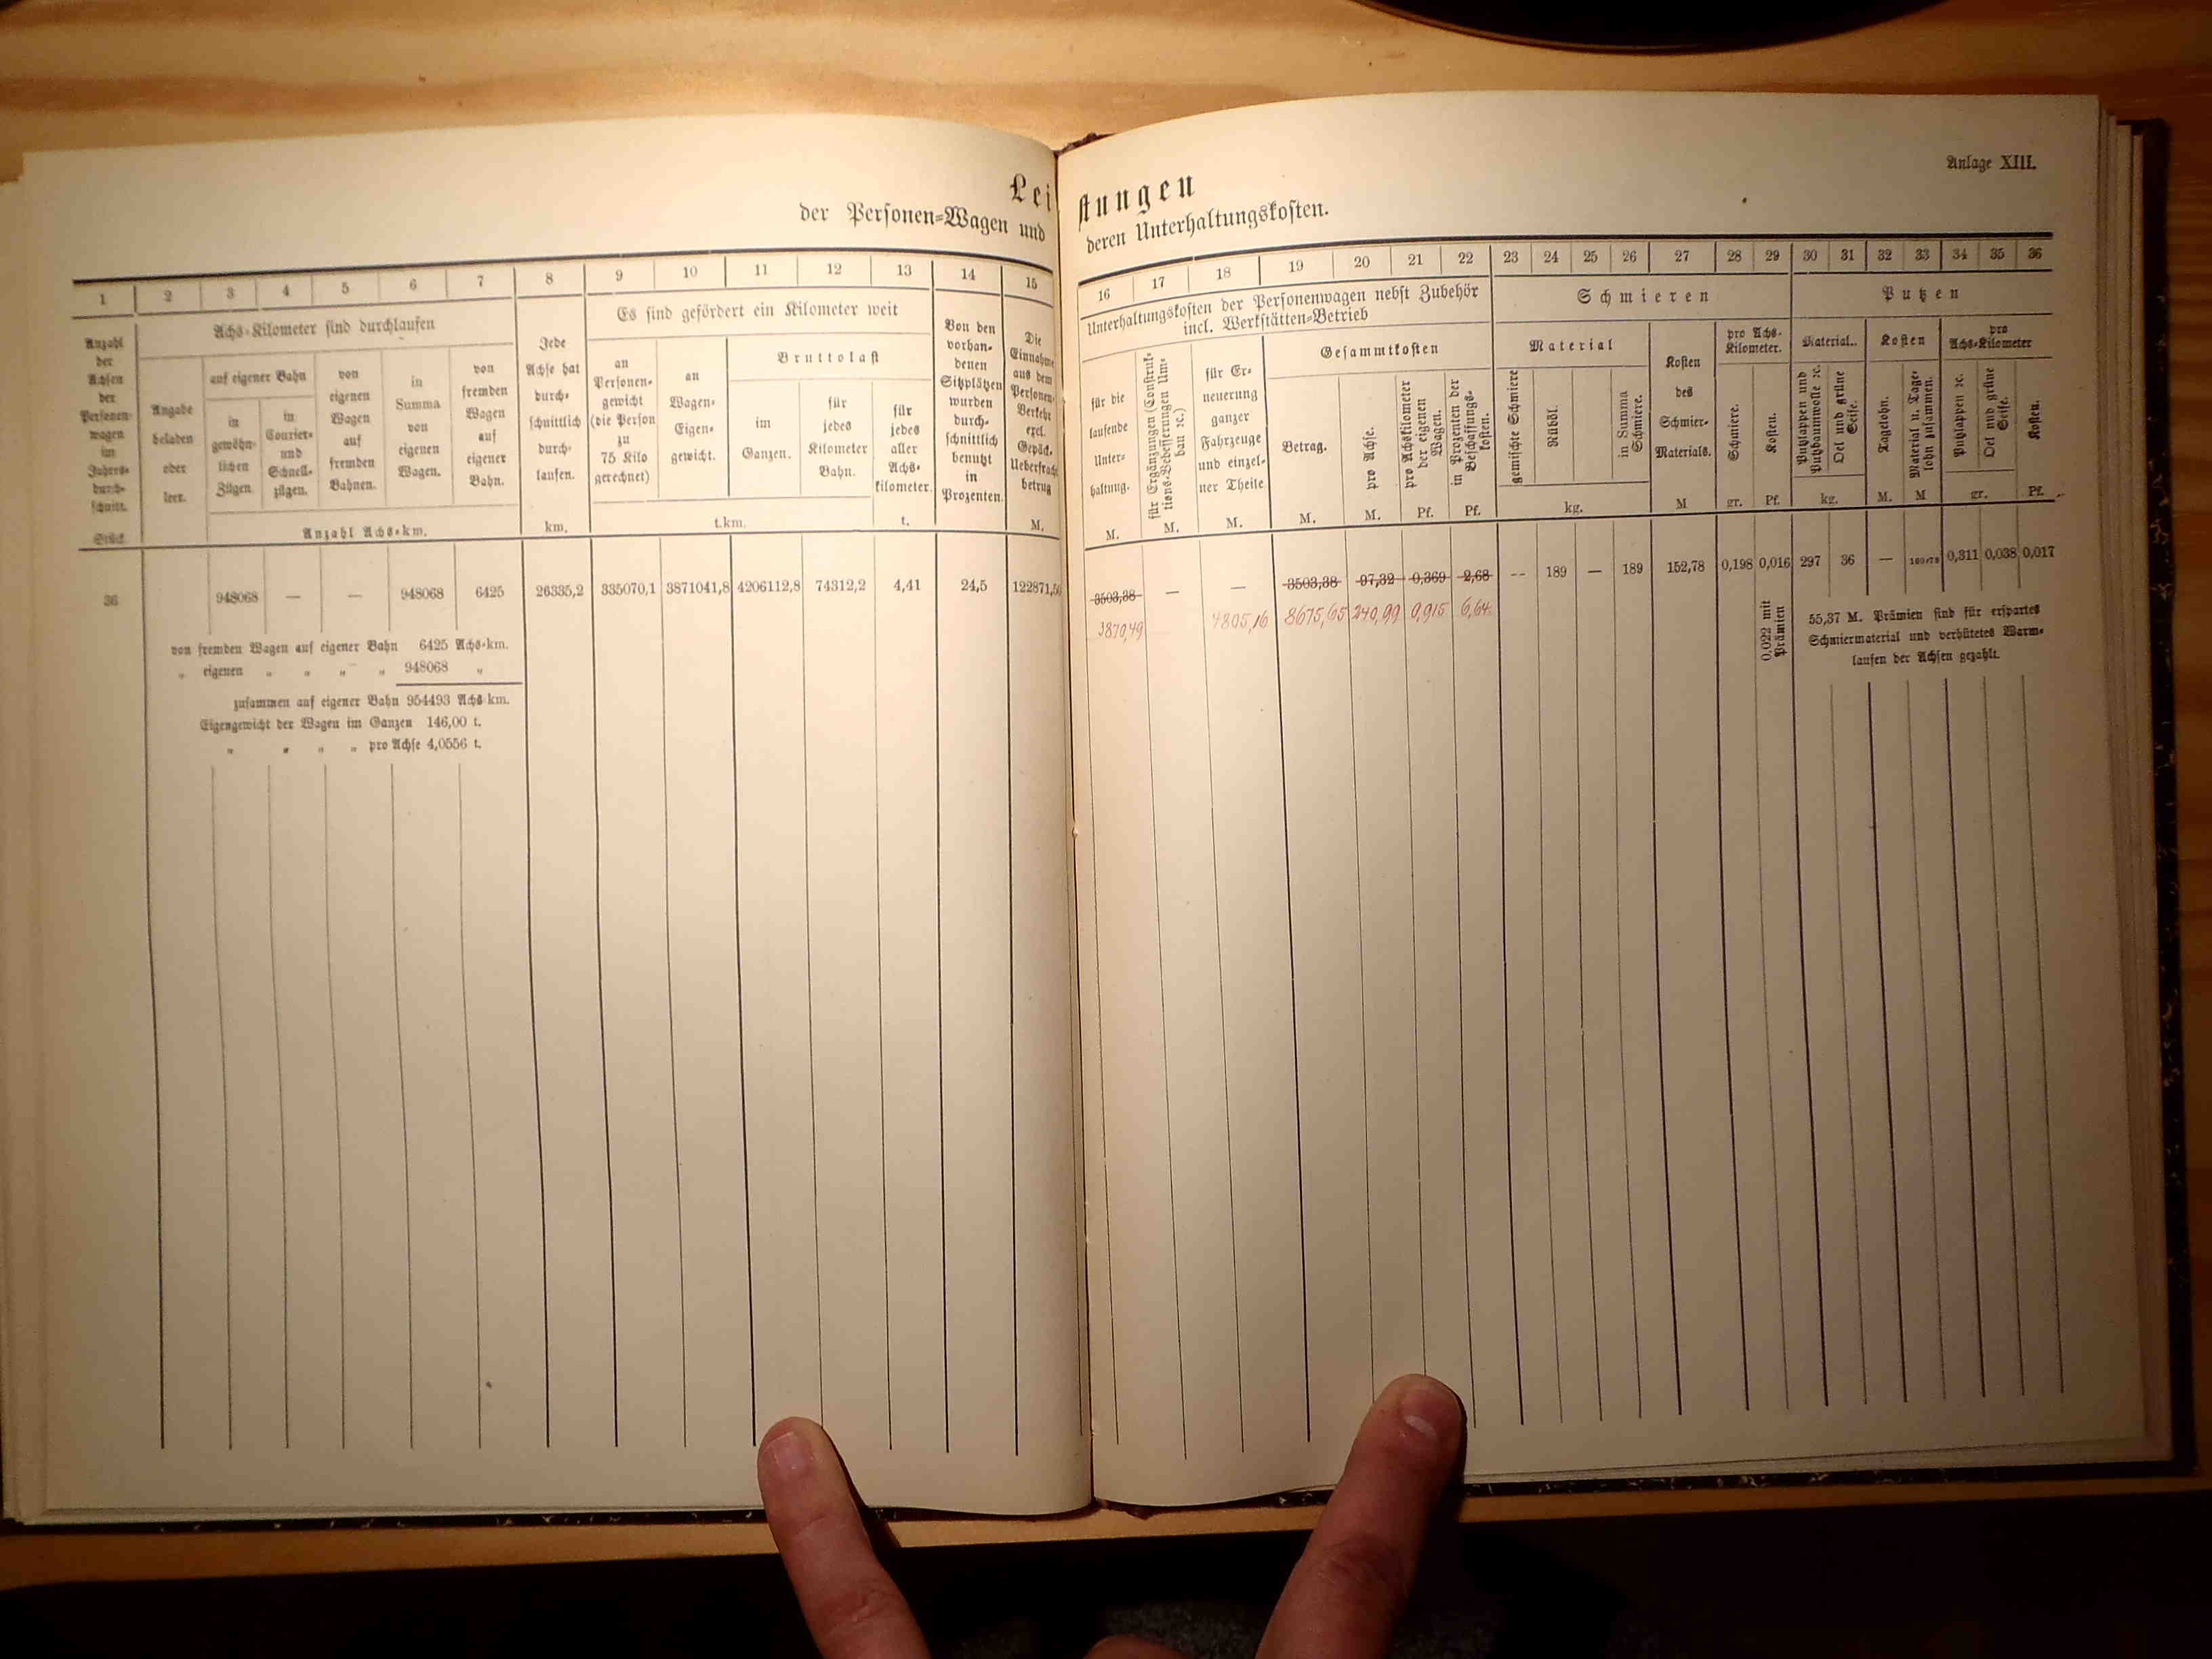 Anlage XIII.
Leistungen
der Personen=Wagen und deren Unterhaltungskosten.
1 2 3 4 5 6 7 8 9 10 11 12 13 14 15
Anzahl der Achsen der Personenwagen im Jahres-durchschnitt.
Stück
Achs-Kilometer sind durchlaufen
Angabe beladen oder leer.
auf eigener Bahn
in gewöhnlichen Zügen.
in Courier- und Schnellzügen.
von eigenen Wagen auf fremden Bahnen.
in Summa von eigenen Wagen.
von fremden Wagen auf eigener Bahn.
Anzahl Achs-km.
Jede Achse hat durchschnittlich durchlaufen.
km.
Es sind gefördert ein Kilometer weit
an Personengewicht (die Person zu 75 Kilo gerechnet)
an Wagen-Eigengewicht.
Bruttolast
im Ganzen.
für jedes Kilometer Bahn.
t.km.
für jedes aller Achskilometer.
t.
Von den vorhandenen Sitzplätzen wurden durchschnittlich benutzt in Prozenten.
Die Einnahme aus dem Personen-Verkehr excl. Gepäck-Ueberfracht betrug
M.
36 948068 — — 948068 6425 26335,2 335070,1 3871041,8 4206112,8 74312,2 4,41 24,5 122871,50
von fremden Wagen auf eigener Bahn 6425 Achs-km.
„ eigenen „ „ „ „ 948068 „
zusammen auf eigener Bahn 954493 Achs-km.
Eigengewicht der Wagen im Ganzen 146,00 t.
„ „ „ „ pro Achse 4,0556 t.
16 17 18 19 20 21 22 23 24 25 26 27 28 29 30 31 32 33 34 35 36
Unterhaltungskosten der Personenwagen nebst Zubehör
incl. Werkstätten=Betrieb
für die laufende Unterhaltung.
M.
für Ergänzungen (Construktions-Verbesserungen Umbau ꝛc.)
M.
für Erneuerung ganzer Fahrzeuge und einzelner Theile
M.
Gesammtkosten
Betrag.
M.
pro Achse.
M.
pro Achskilometer der eigenen Wagen.
Pf.
in Prozenten der Beschaffungskosten.
Pf.
Schmieren
Material
gemischte Schmiere
Rüböl.
in Summa Schmiere.
kg.
Kosten des Schmier-Materials.
M
pro Achs-Kilometer.
Schmiere.
gr.
Kosten.
Pf.
Putzen
Material.
Putzlappen und Putzbaumwolle ꝛc.
Oel und grüne Seife.
kg.
Kosten
Tagelohn.
M.
Material u. Tagelohn zusammen.
M
pro Achs-Kilometer
Putzlappen ꝛc.
Oel und grüne Seife.
gr.
Kosten.
Pf.
3503,38 — — 3503,38 97,32 0,369 2,68 -- 189 — 189 152,78 0,198 0,016 297 36 — 0,311 0,038 0,017
3870,49 4805,16 8675,65 240,99 0,915 6,64.
0,022 mit Prämien
55,37 M. Prämien sind für erspartes
Schmiermaterial und verhütetes Warm-
laufen der Achsen gezahlt.